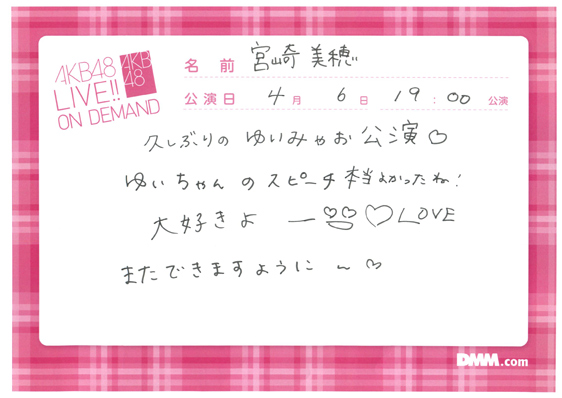 AKB48
LIVE!!
ON DEMAND
AKB
48
名前 宮崎 美穂
公演日 4月 6日 19:00 公演
久しぶりの ゆいみゃお 公演♡
ゆいちゃん の スピーチ 本当よかったね!
大好きよ ー ♡♡ ♡ LOVE
またできますように 〜 ♡
DMM.com